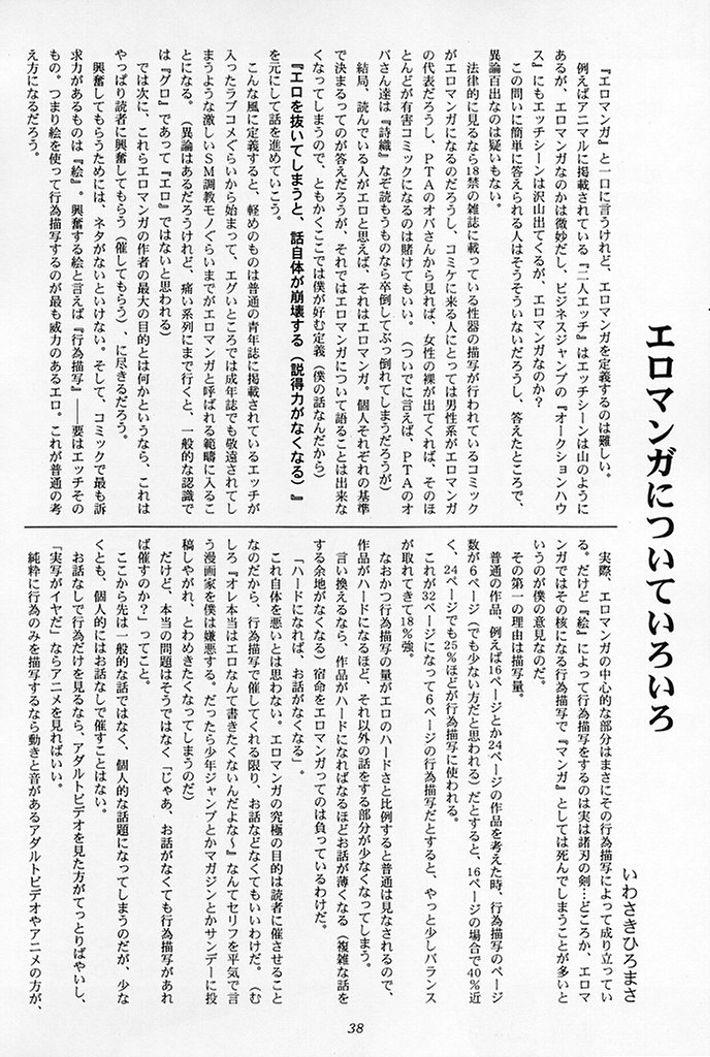 エロマンガについていろいろ
いわさきひろまさ
『エロマンガ』と一口に言うけれど、エロマンガを定義するのは難しい。
例えばアニマルに掲載されている『二人エッチ』はエッチシーンは山のように
あるが、エロマンガなのかは微妙だし、ビジネスジャンプの『オークションハウ
ス』にもエッチシーンは沢山出てくるが、エロマンガなのか?
この問いに簡単に答えられる人はそうそういないだろうし、答えたところで、
異論百出なのは疑いもない。
法律的に見るなら18禁の雑誌に載っている性器の描写が行われているコミック
がエロマンガになるのだろうし、コミケに来る人にとっては男性系がエロマンガ
の代表だろうし、PTAのオバさんから見れば、女性の裸が出てくれば、そのほ
とんどが有害コミックになるのは賭けてもいい。(ついでに言えば、PTAのオ
バさん達は『詩織』なぞ読もうものなら卒倒してぶっ倒れてしまうだろうが)
結局、読んでいる人がエロと思えば、それはエロマンガ。個人それぞれの基準
で決まるってのが答えだろうが、それではエロマンガについて語ることは出来な
くなってしまうので、ともかくここでは僕が好む定義(僕の話なんだから)
『エロを抜いてしまうと、話自体が崩壊する(説得力がなくなる)』
を元にして話を進めていこう。
こんな風に定義すると、軽めのものは普通の青年誌に掲載されているエッチが
入ったラブコメぐらいから始まって、エグいところでは成年誌でも敬遠されてし
まうような激しいSM調教モノぐらいまでがエロマンガと呼ばれる範疇に入るこ
とになる。(異論はあるだろうけれど、痛い系列にまで行くと、一般的な認識で
は『グロ』であって『エロ』ではないと思われる)
では次に、これらエロマンガの作者の最大の目的とは何かというなら、これは
やっぱり読者に興奮してもらう(催してもらう)、に尽きるだろう。
興奮してもらうためには、ネタがないといけない。そして、コミックで最も訴
求力があるものは『絵』。興奮する絵と言えば『行為描写』――要はエッチその
もの。つまり絵を使って行為描写するのが最も威力のあるエロ。これが普通の考
え方になるだろう。
実際、エロマンガの中心的な部分はまさにその行為描写によって成り立ってい
る。だけど『絵』によって行為描写をするのは実は諸刃の剣…どころか、エロマ
ンガではその核になる行為描写で『マンガ』としては死んでしまうことが多いと
いうのが僕の意見なのだ。
その第一の理由は描写量。
普通の作品、例えば16ページとか24ページの作品を考えた時、行為描写のページ
数が6ページ(でも少ない方だと思われる)だとすると、16ページの場合で40%近
く、24ページでも25%ほどが行為描写に使われる。
これが32ページになって6ページの行為描写だとすると、やっと少しバランス
が取れてきて18%強。
なおかつ行為描写の量がエロのハードさと比例すると普通は見なされるので、
作品がハードになるほど、それ以外の話をする部分が少なくなってしまう。
言い換えるなら、作品がハードになればなるほどお話が薄くなる(複雑な話を
する余地がなくなる)宿命をエロマンガってのは負っているわけだ。
「ハードになれば、お話がなくなる」。
これ自体を悪いとは思わない。エロマンガの究極の目的は読者に催させること
なのだから、行為描写で催してくれる限り、お話などなくてもいいわけだ。(む
しろ『オレ本当はエロなんて書きたくないんだよな〜』なんてセリフを平気で言
う漫画家を僕は嫌悪する。だったら少年ジャンプとかマガジンとかサンデーに投
稿しやがれ、とわめきたくなってしまうのだ)
だけど、本当の問題はそうではなく、「じゃあ、お話がなくても行為描写があれ
ば催すのか?」ってこと。
ここから先は一般的な話ではなく、個人的な話題になってしまうのだが、少な
くとも、個人的にはお話なしで催すことはない。
お話なしで行為だけを見るなら、アダルトビデオを見た方がてっとりばやいし、
「実写がイヤだ」ならアニメを見ればいい。
純粋に行為のみを描写するなら動きと音があるアダルトビデオやアニメの方が、
38